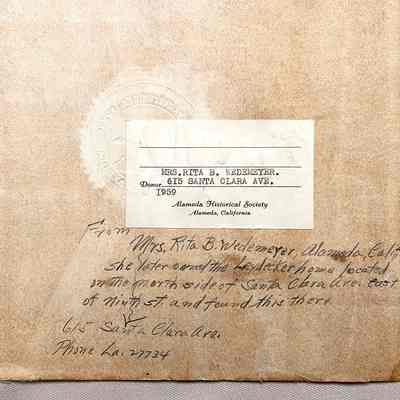 MRS.RITA B. WEDEMEYER.
Donor 615 SANTA CLARA AVE.
1959
Alameda Historical Society
Alameda, California
From
Mrs. Rita B. Wedemeyer, Alameda, Calif
she later owned the Leydecker home located
on the north side of Santa Clara Ave. east
of Ninth st. and found this there
615 Santa Clara Ave.
Phone La. 27734